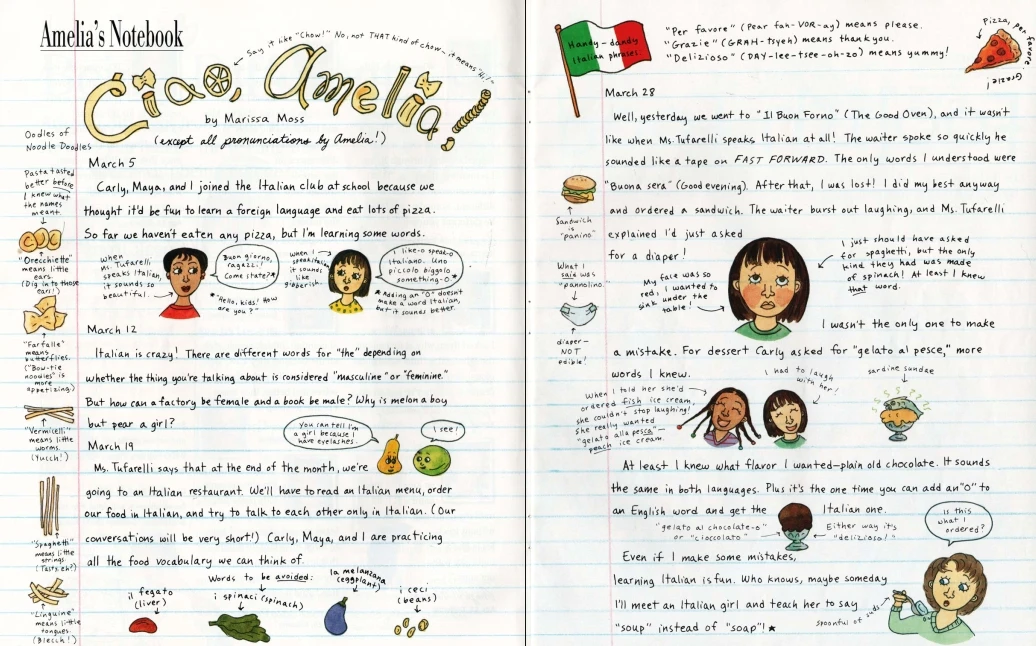 Amelia's Notebook
Say it like "Chow!" No, not THAT kind of chow—it means "Hi!"
Ciao, Amelia!
by Marissa Moss
(except all pronunciations by Amelia!)
Oodles of
Noodle Doodles
Pasta tasted
better before
I knew what
the names
meant.
"Orecchiette"
means little
ears.
(Dig in to those
ears!)
"Farfalle"
means
butterflies.
("Bow-tie
noodles" is
more
appetizing.)
"Vermicelli"
means little
worms.
(Yucch!)
"Spaghetti"
means little
strings
(Tasty, eh?)
"Linguine"
means little
tongues.
(Blecch!)
March 5
Carly, Maya, and I joined the Italian club at school because we
thought it'd be fun to learn a foreign language and eat lots of pizza.
So far we haven't eaten any pizza, but I'm learning some words.
When
Ms. Tufarelli
speaks Italian,
it sounds so
beautiful.
Buon giorno,
ragazzi!
Come state?*
*"Hello, kids! How
are you?"
When I
speak Italian,
it sounds
like
gibberish.
I like-o speak-o
Italiano. Uno
piccolo biggolo
something-o*
*Adding an "O" doesn't
make a word Italian,
but it sounds better.
March 12
Italian is crazy! There are different words for "the" depending on
whether the thing you're talking about is considered "masculine" or "feminine."
But how can a factory be female and a book be male? Why is melon a boy
but pear a girl?
You can tell I'm
a girl because I
have eyelashes
I see!
March 19
Ms. Tufarelli says that at the end of the month, we're
going to an Italian restaurant. We'll have to read an Italian menu, order
our food in Italian, and try to talk to each other only in Italian. (Our
conversations will be very short!) Carly, Maya, and I are practicing
all the food vocabulary we can think of.
Words to be avoided:
il fegato
(liver)
i spinaci (spinach)
la melanzana
(eggplant)
i ceci
(beans)
Handy-dandy
Italian phrases:
"Per favore" (Pear fah-VOR-ay) means please.
"Grazie" (GRAH-tsyeh) means thank you.
"Delizioso" (DAY-lee-tsee-oh-zo) means yummy!
Pizza, per favore!
Grazie!
March 28
Well, yesterday we went to "Il Buon Forno" (The Good Oven), and it wasn't
like when Ms. Tufarelli speaks Italian at all! The waiter spoke so quickly he
sounded like a tape on FAST FORWARD. The only words I understood were
"Buona sera" (Good evening). After that, I was lost! I did my best anyway
and ordered a sandwich. The waiter burst out laughing, and Ms. Tufarelli
explained I'd just asked
for a diaper!
Sandwich
is
"panino"
What I
said was
"pannolino."
diaper—
NOT
edible!
My face was so
red, I wanted to
sink under the
table!
I just should have asked
for spaghetti, but the only
kind they had was made
of spinach! At least I knew
that word.
I wasn't the only one to make
a mistake. For dessert Carly asked for "gelato al pesce," more
words I knew.
When I told her she'd
ordered fish ice cream,
she couldn't stop laughing!
She really wanted
"gelato alla pesca"—
peach ice cream.
I had to laugh
with her!
sardine sundae
At least I knew what flavor I wanted—plain old chocolate. It sounds
the same in both languages. Plus it's the one time you can add an "O" to
an English word and get the Italian one.
"gelato al chocolate-o"
or "cioccolato"
Either way it's
"delizioso!"
Is this
what I
ordered?
Even if I make some mistakes,
learning Italian is fun. Who knows, maybe someday
I'll meet an Italian girl and teach her to say
"soup" instead of "soap"! ★
spoonful of suds